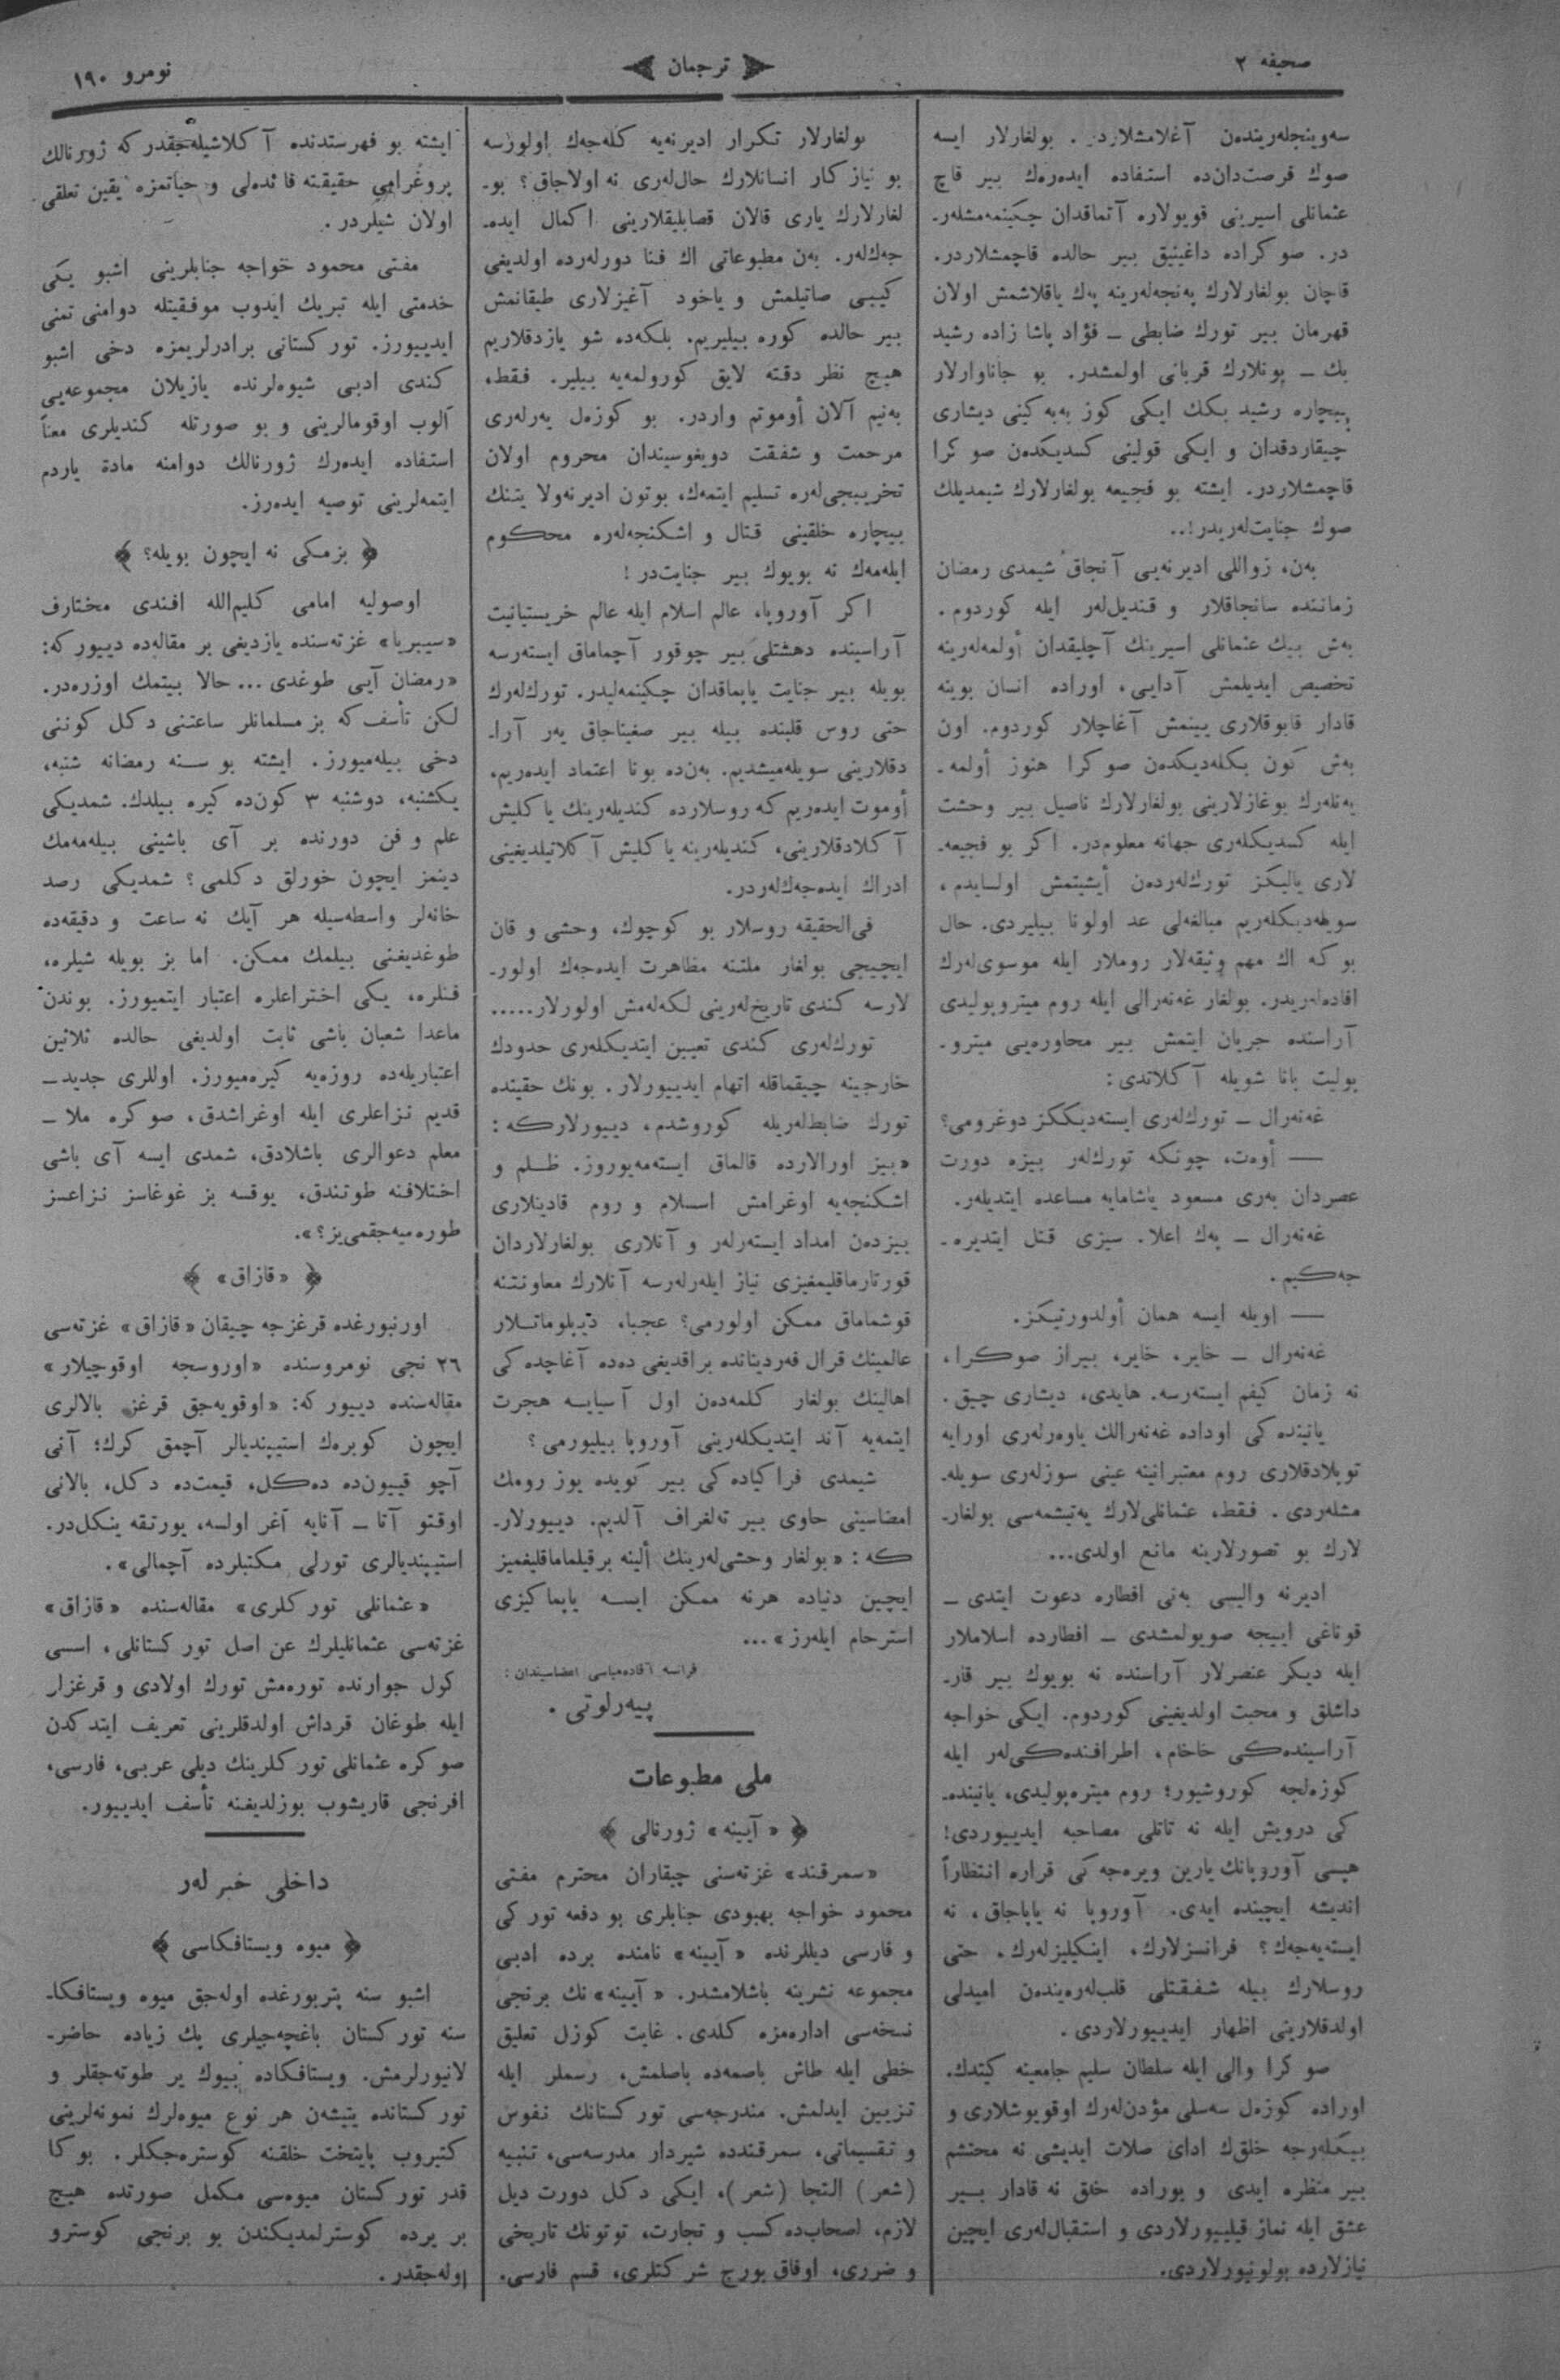 صحیفه ٢
ترجمان
نومرو ١٩٠
سه‌وینجله‌ریندەن آغلامشلاردر. بولغارلار ایسه
صوك فرصت‌دان‌ده استفاده ایده‌ره‌ك بیر قاچ
عثمانلی اسیرینی قویولاره آتماقدان چیکینمه‌مشلەر-
در. صوکراده داغینیق بیر حالده قاچمشلاردر.
قاچان بولغارلارك په‌نجه‌له‌رینه په‌ك یاقلاشمش اولان
قهرمان بیر تورك ضابطی ــ فؤاد پاشا زاده رشید
بك ــ بونلارك قربانی اولمشدر. بو جاناوارلار
بیچاره رشید بكك ایکی کوز به‌به‌کینی دیشاری
چیقاردقدان و ایکی قولینی کسدیکدەن صوکرا
قاچمشلاردر. ایشته بو فجیعه بولغارلارك شیمدیلك
صوك جنایت‌له‌ریدر!..
به‌ن، زواللی ادیرنه‌یی آنجاق شیمدی رمضان
زماننده سانجاقلار و قندیل‌له‌ر ایله کوردوم.
به‌ش بیك عثمانلی اسیرینك آچلیقدان أولمه‌له‌رینه
تخصیص ایدیلمش آدایی، اوراده انسان بوینه
قادار قابوقلاری یینمش آغاچلار کوردوم. اون
به‌ش کون بکله‌دیکدەن صوکرا هنوز أولمه-
یه‌نله‌رك بوغازلارینی بولغارلارك ناصیل بیر وحشت
ایله کسدیکله‌ری جهانه معلوم‌در. اکر بو فجیعه-
لاری یالیکز تورك‌له‌ردەن أیشیتمش اولسایدم،
سویله‌دیکله‌ریم مبالغه‌لی عد اولونا بیلیردی. حال
بو که اك مهم وثیقه‌لار روملار ایله موسوی‌له‌رك
افاده‌له‌ریدر. بولغار غه‌نه‌رالی ایله روم میتروپولیدی
آراسنده جریان ایتمش بیر محاوره‌یی میترو-
پولیت بانا شویله آکلاتدی:
غه‌نه‌رال ــ تورك‌له‌ری ایسته‌دیککز دوغرومی؟
— أوه‌ت، چونکه تورك‌له‌ر بیزه دورت
عصردان به‌ری مسعود یاشامایه مساعده ایتدیله‌ر.
غه‌نه‌رال ــ په‌ك اعلا. سیزی قتل ایتدیره-
جه‌کیم.
— اویله ایسه همان أولدورتیکز.
غه‌نه‌رال ــ خایر، خایر، بیراز صوکرا،
نه زمان کیفم ایسته‌رسه. هایدی، دیشاری چیق.
یانینده‌کی اوداده غه‌نه‌رالك یاوه‌رله‌ری اورایه
توپلادقلاری روم معتبرانینه عینی سوزله‌ری سویله-
مشله‌ردی. فقط، عثمانلی‌لارك یه‌تیشمه‌سی بولغار-
لارك بو تصورلارینه مانع اولدی...
ادیرنه والیسی به‌نی افطاره دعوت ایتدی ــ
قوناغی اییجه صویولمشدی ــ افطارده اسلاملار
ایله دیکر عنصرلار آراسنده نه بویوك بیر قار-
داشلق و محبت اولدیغینی کوردوم. ایکی خواجه
آراسینده‌کی خاخام، اطرافنده‌کی‌له‌ر ایله
کوزه‌لجه کوروشیور؛ روم میتره‌پولیدی، یانینده-
کی درویش ایله نه تاتلی مصاحبه ایدییوردی!
هپسی آوروپانك یارین ویره‌جه‌کی قراره انتظاراً
اندیشه ایچینده ایدی. آوروپا نه یاپاجاق، نه
ایسته‌یه‌جه‌ك؟ فرانسزلارك، اینکیلیزله‌رك، حتی
روسلارك بیله شفقتلی قلب‌له‌ره‌یندەن امیدلی
اولدقلارینی اظهار ایدییورلاردی.
صوکرا والی ایله سلطان سلیم جامعینه کیتدك.
اوراده کوزه‌ل سه‌سلی مؤذن‌له‌رك اوقویوشلاری و
بیکله‌رجه خلق‌ك ادای صلات ایدیشی نه محتشم
بیر منظره ایدی و بوراده خلق نه قادار بیر
عشق ایله نماز قیلییورلاردی و استقبال‌له‌ری ایچین
نیازلارده بولونیورلاردی.
بولغارلار تکرار ادیرنه‌یه کله‌جه‌ك اولورسه
بو نیازکار انسانلارك حال‌له‌ری نه اولاجاق؟ بو-
لغارلارك یاری قالان قصابلیقلارینی اکمال ایده-
جه‌ك‌له‌ر. به‌ن مطبوعاتی اك فنا دورله‌رده اولدیغی
کیبی صاتیلمش ویاخود آغیزلاری طیقانمش
بیر حالده کوره بیلیریم. بلکه‌ده شو یازدقلاریم
هیچ نظر دقته لایق کورولمه‌یه بیلیر. فقط،
به‌نیم آلان أوموتم واردر. بو کوزه‌ل یه‌رله‌ری
مرحمت و شفقت دویغوسیندان محروم اولان
تخریبجی‌له‌ره تسلیم ایتمه‌ك، بوتون ادیرنه‌ولا یتنك
بیچاره خلقینی قتال و اشکنجه‌له‌ره محکوم
ایله‌مه‌ك نه بویوك بیر جنایت‌در!
اکر آوروپا، عالم اسلام ایله عالم خریستیانیت
آراسینده دهشتلی بیر چوقور آچماماق ایسته‌رسه
بویله بیر جنایت یاپماقدان چکینمه‌لیدر. تورك‌له‌رك
حتی روس قلبنده بیله بیر صغیناجاق یه‌ر آرا-
دقلارینی سویله‌میشدیم. به‌ن‌ده بونا اعتماد ایده‌ریم،
أوموت ایده‌ریم که روسلارده کندیله‌رینك یاکلیش
آکلادقلارینی، کندیله‌رینه یاکلیش آکلاتیلدیغینی
ادراك ایده‌جه‌ك‌له‌ردر.
فی‌الحقیقه روسلار بو کوچوك، وحشی و قان
ایچیجی بولغار ملتنه مظاهرت ایده‌جه‌ك اولور-
لارسه کندی تاریخ‌له‌رینی لکه‌له‌مش اولورلار.....
تورك‌له‌ری کندی تعیین ایتدیکله‌ری حدودك
خارجینه چیقماقله اتهام ایدییورلار. بونك حقینده
تورك ضابط‌له‌ریله کوروشدم، دییورلارکه:
«بیز اورالارده قالماق ایسته‌مه‌یوروز. ظلم و
اشکنجه‌یه اوغرامش اسلام و روم قادینلاری
بیزدەن امداد ایسته‌رلەر و آنلاری بولغارلاردان
قورتارماقلیمغیزی نیاز ایله‌رله‌رسه آنلارك معاونتنه
قوشماماق ممکن اولورمی؟ عجبا، دیپلوماتلار
عالمینك قرال فه‌ردیناندە براقدیغی ده‌ده آغاچده‌کی
اهالینك بولغار کلمه‌دەن اول آسیایه هجرت
ایتمه‌یه آند ایتدیکله‌رینی آوروپا بیلیورمی؟
شیمدی فراکیاده‌کی بیر کویده یوز رومك
امضاسینی حاوی بیر ته‌لغراف آلدیم. دییورلار-
که: «بولغار وحشی‌له‌رینك ألینه برقیلماماقلیغمیز
ایچین دنیاده هرنه ممکن ایسه یاپماکیزی
استرحام ایله‌رز»...
فرانسه آقاده‌میاسی اعضاسیندان:
پیه‌رلوتی.
ملی مطبوعات
﴿ «آیینه» ژورنالی ﴾
«سمرقند» غزته‌سنی چیقاران محترم مفتی
محمود خواجه بهبودی جنابلری بو دفعه تورکی
و فارسی دیللرنده «آیینه» نامنده برده ادبی
مجموعه نشرینه باشلامشدر. «آیینه» نك برنجی
نسخه‌سی اداره‌مزه کلدی. غایت کوزل تعلیق
خطی ایله طاش باصمه‌ده باصلمش، رسملر ایله
تزیین ایدلمش. مندرجه‌سی تورکستانك نفوس
و تقسیماتی، سمرقندده شیردار مدرسه‌سی، تنبیه
(شعر) التجا (شعر)، ایکی دکل دورت دیل
لازم، اصحاب‌ده کسب و تجارت، توتونك تاریخی
و ضرری، اوفاق بورج شرکتلری، قسم فارسی.
ایشته بو فهرستدنده آکلاشیله‌جقدر که ژورنالك
پروغرامی حقیقته فائده‌لی و حیاتمزه یقین تعلقی
اولان شیلردر.
مفتی محمود خواجه جنابلرینی اشبو یکی
خدمتی ایله تبریك ایدوب موفقیتله دوامنی تمنی
ایدییورز. تورکستانی برادرلریمزه دخی اشبو
کندی ادبی شیوه‌لرنده یازیلان مجموعه‌یی
آلوب اوقومالرینی و بو صورتله کندیلری معناً
استفاده ایده‌رك ژورنالك دوامنه مادة یاردم
ایتمه‌لرینی توصیه ایده‌رز.
﴿ بزمکی نه ایچون بویله؟ ﴾
اوصولیه امامی کلیم‌الله افندی مختارف
«سیبریا» غزته‌سنده یازدیغی بر مقاله‌ده دییور که:
«رمضان آیی طوغدی... حالا بیتمك اوزره‌در.
لکن تأسف که بز مسلمانلر ساعتنی دکل کوننی
دخی بیله‌میورز. ایشته بو سنه رمضانه شنبه،
یکشنبه، دوشنبه ٣ کون‌ده کیره بیلدك. شمدیکی
علم و فن دورنده بر آی باشینی بیله‌مه‌مك
دینمز ایچون خورلق دکلمی؟ شمدیکی رصد
خانه‌لر واسطه‌سیله هر آیك نه ساعت و دقیقه‌ده
طوغدیغنی بیلمك ممکن. اما بز بویله شیلره،
فنلره، یکی اختراعلره اعتبار ایتمیورز. بوندن
ماعدا شعبان باشی ثابت اولدیغی حالده ثلاثین
اعتباریله‌ده روزه‌یه کیره‌میورز. اوللری جدید ــ
قدیم نزاعلری ایله اوغراشدق، صوکره ملا ــ
معلم دعوالری باشلادق، شمدی ایسه آی باشی
اختلافنه طوتندق، یوقسه بز غوغاسز نزاعسز
طوره‌میه‌جقمی‌یز؟».
﴿ «قازاق» ﴾
اورنبورغده قرغزجه چیقان «قازاق» غزته‌سی
٢٦ نجی نومروسنده «اوروسجه اوقوچیلار»
مقاله‌سنده دییور که: «اوقویه‌جق قرغز بالالری
ایچون کوبره‌ك استیپندیالر آچمق کرك؛ آنی
آچو قییون‌ده ده‌کل، قیمت‌ده دکل، بالانی
اوقتو آتا ــ آنایه آغر اولسه، یورتقه ینکل‌در.
استیپندیالری تورلی مکتبلرده آچمالی».
«عثمانلی تورکلری» مقاله‌سنده «قازاق»
غزته‌سی عثمانلیلرك عن اصل تورکستانلی، اسسی
کول جوارنده توره‌مش تورك اولادی و قرغزلر
ایله طوغان قرداش اولدقلرینی تعریف ایتدکدن
صوکره عثمانلی تورکلرینك دیلی عربی، فارسی،
افرنجی قاریشوب بوزلدیغنه تأسف ایدییور.
داخلی خبرله‌ر
﴿ میوه ویستافکاسی ﴾
اشبو سنه پتربورغده اوله‌جق میوه ویستافکا-
سنه تورکستان باغچه‌جیلری پك زیاده حاضر-
لانیورلرمش. ویستافکاده بیوك یر طوته‌جقلر و
تورکستانده یتیشەن هر نوع میوه‌لرك نمونه‌لرینی
کتیروب پایتخت خلقنه کوستره‌جکلر. بوکا
قدر تورکستان میوه‌سی مکمل صورتده هیچ
بر یرده کوسترلمدیکندن بو برنجی کوسترو
اوله‌جقدر.